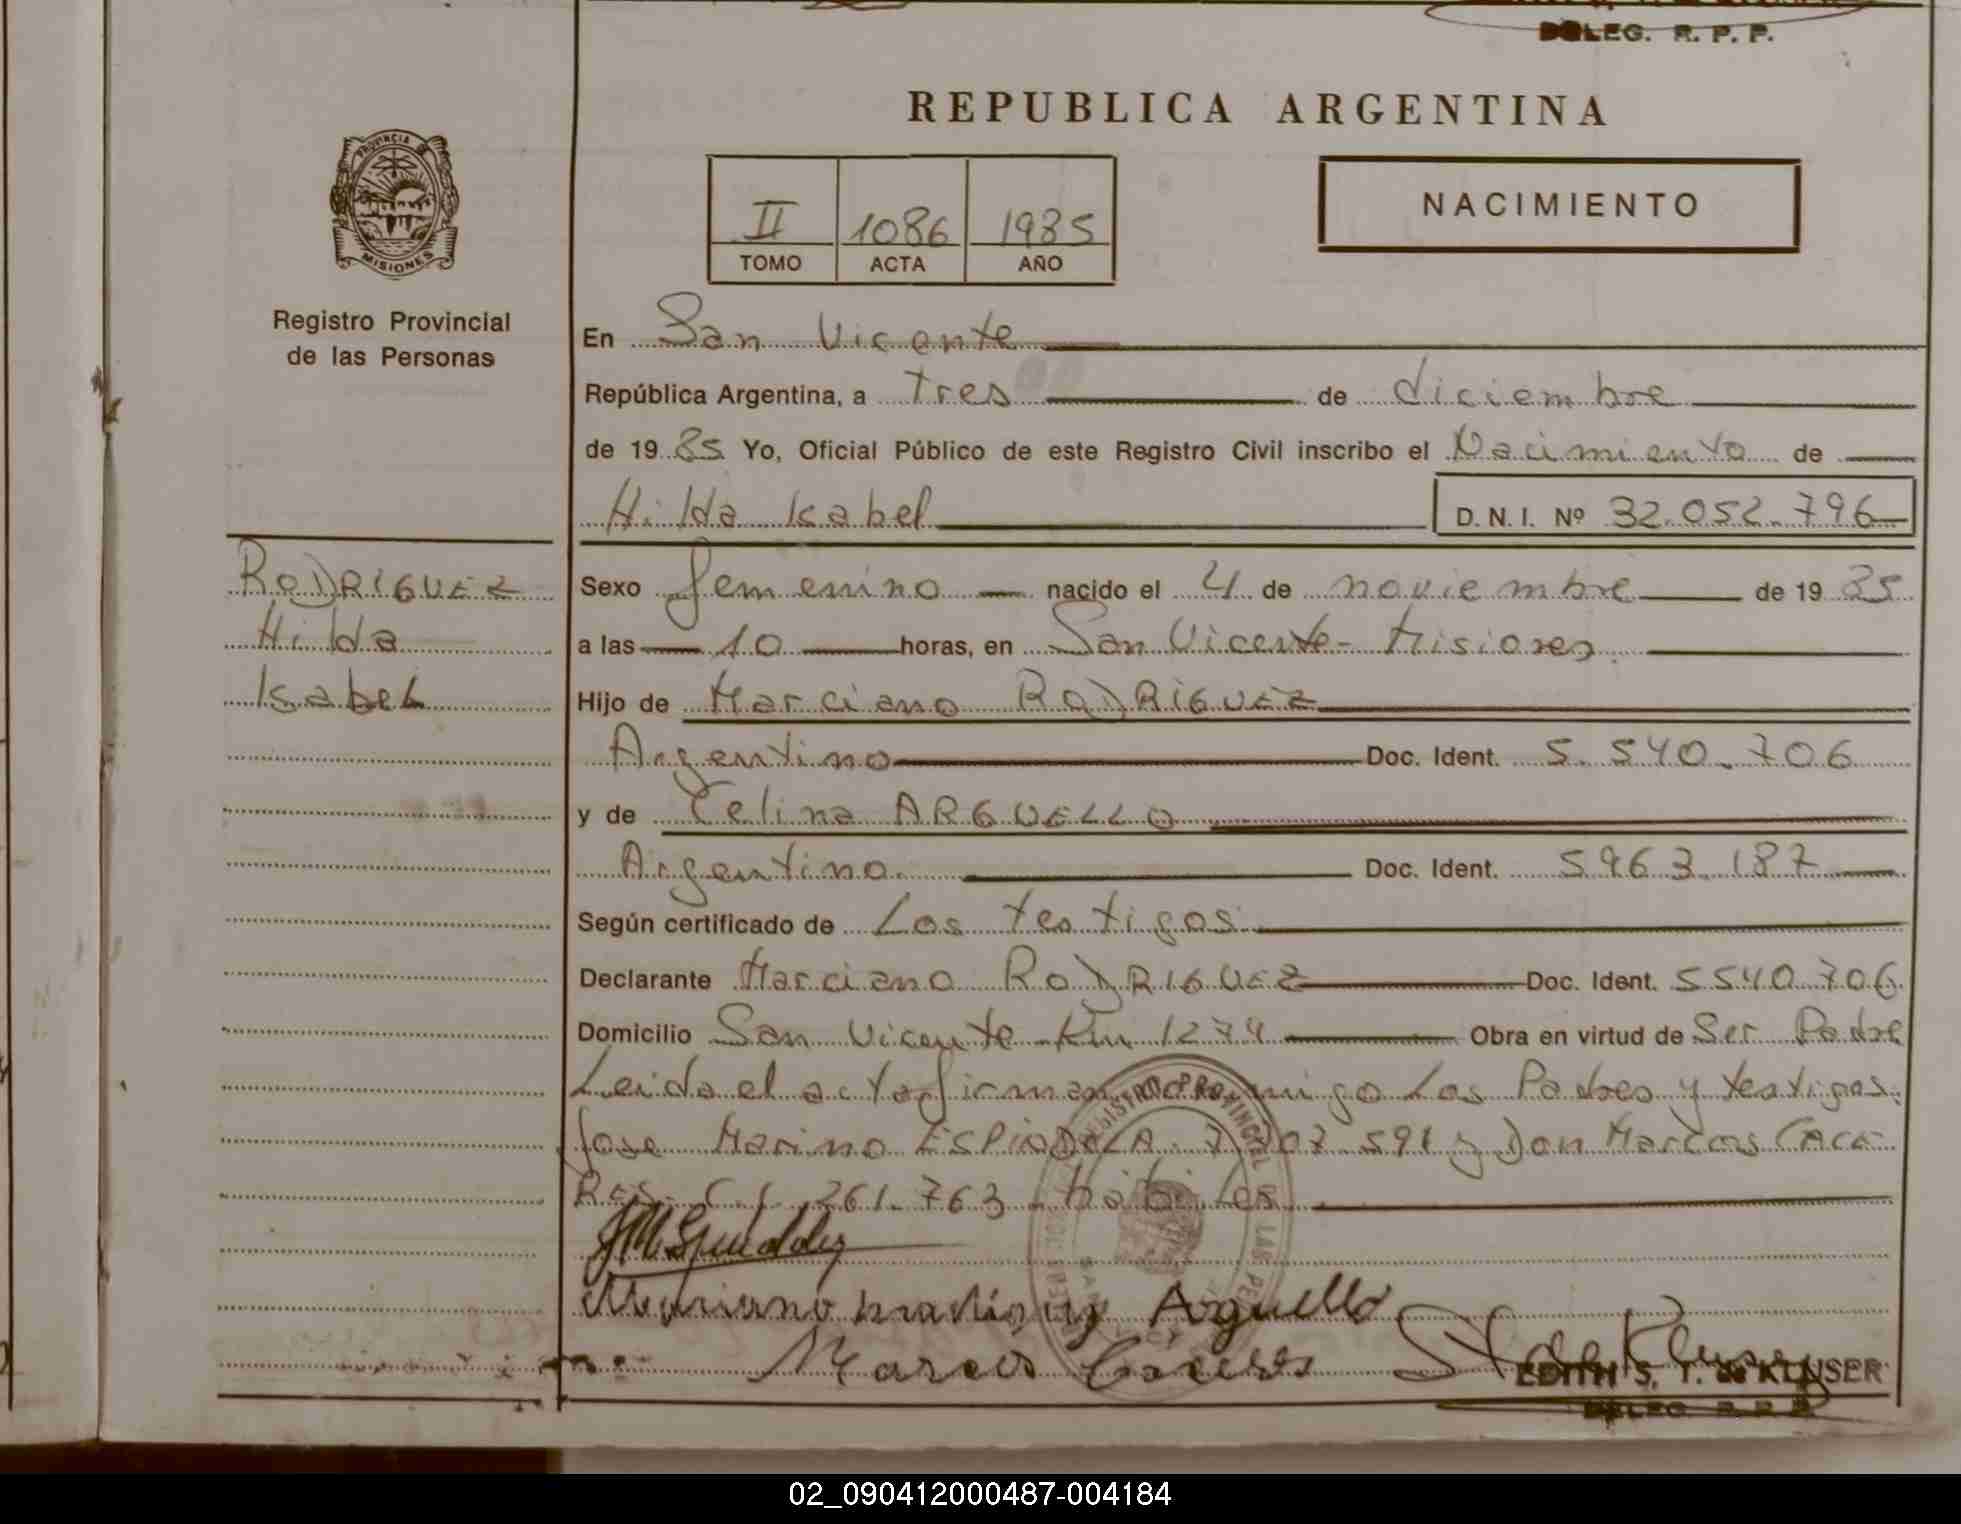 DELEG. R. P. P.
REPUBLICA ARGENTINA
PROVINCIA D
MISIONES
Registro Provincial
de las Personas
II 1086 1985
TOMO ACTA AÑO
NACIMIENTO
En San Vicente
República Argentina, a tres de diciembre
de 19 85 Yo, Oficial Público de este Registro Civil inscribo el Nacimiento de
Hilda Isabel D. N. I. Nº 32.052.796
RODRIGUEZ
Hilda
Isabel
Sexo femenino nacido el 4 de noviembre de 19 85
a las 10 horas, en San Vicente - Misiones.
Hijo de Marciano RODRIGUEZ
Argentino Doc. Ident. 5.540.706
y de Celina ARGUELLO
Argentina Doc. Ident. 5963.187
Según certificado de Los testigos
Declarante Marciano RODRIGUEZ Doc. Ident. 5540.706
Domicilio San Vicente Km 1274 Obra en virtud de Ser Padre
Leida el acta firman migo Los Padres y testigos:
Jose Marino 591 y Don Marcos CACE
RES C.I. 261.763 - habiles
Arguello
Marcos Caceres
EDITH S. T. de KLUSER
DELEG. R. P. P.
02_090412000487-004184